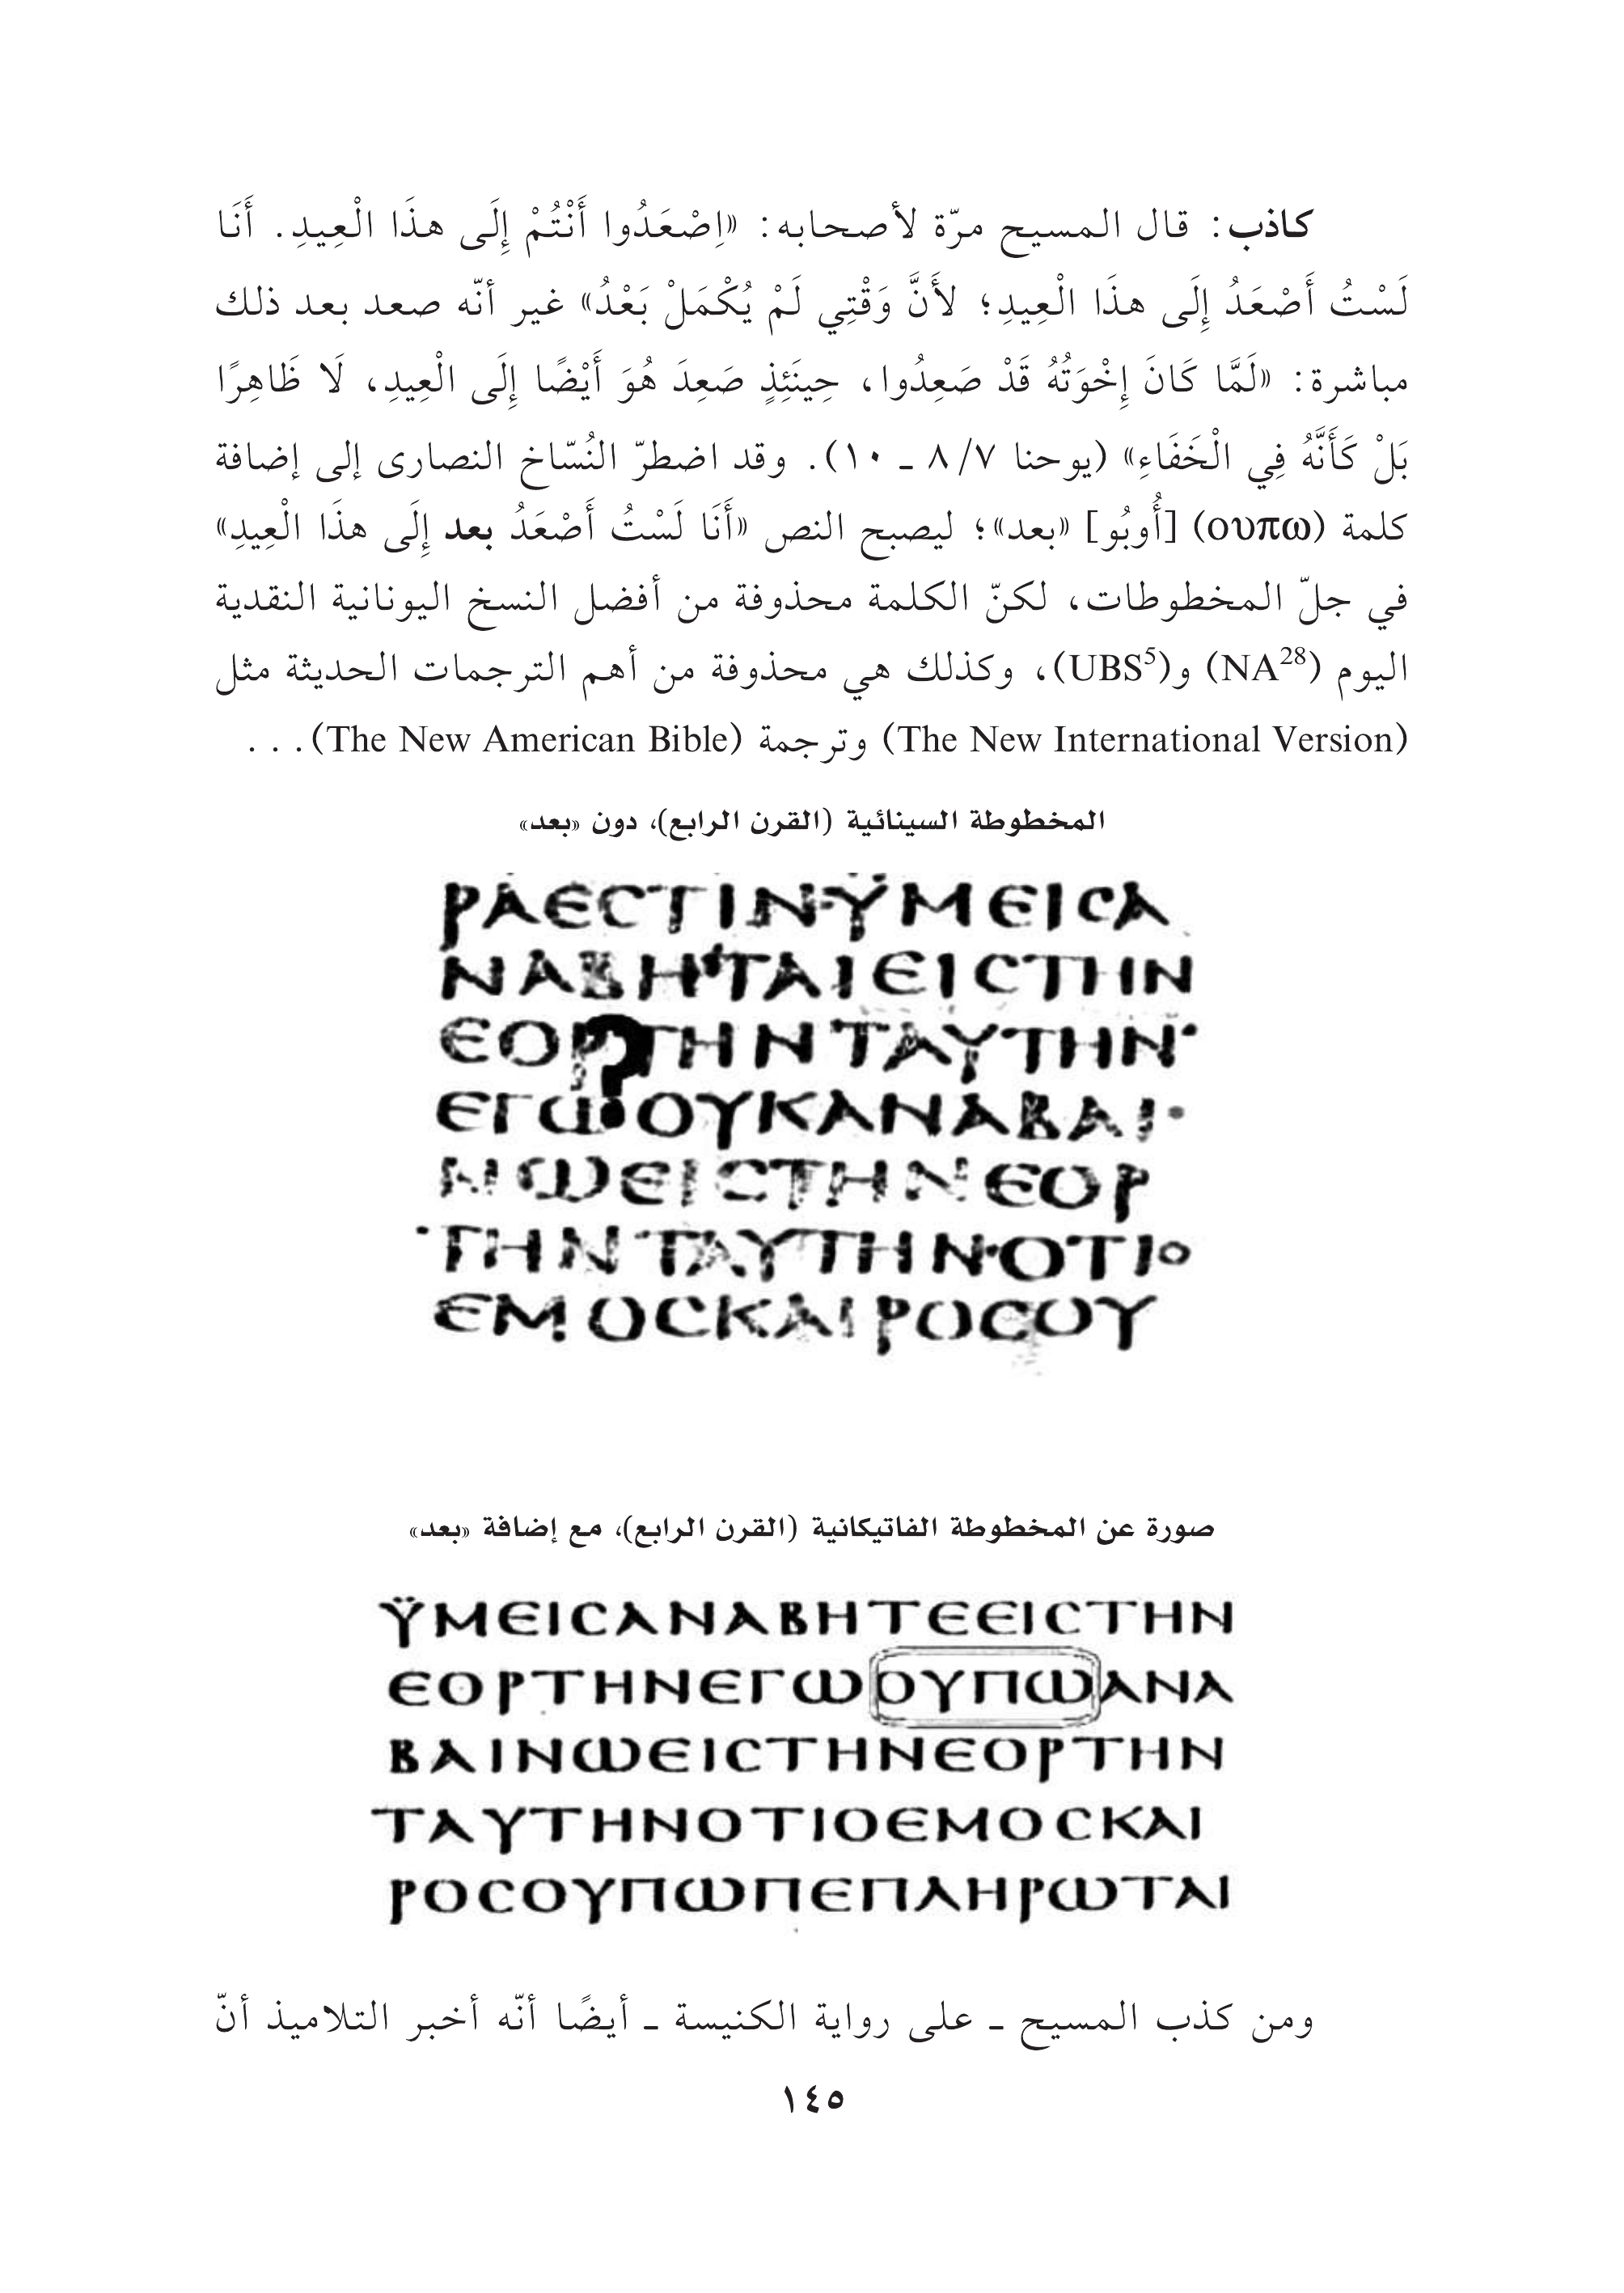 كاذب: قال المسيح مرّة لأصحابه: «اِصْعَدُوا أَنْتُمْ إِلَى هذَا الْعِيدِ. أَنَا
لَسْتُ أَصْعَدُ إِلَى هذَا الْعِيدِ؛ لأَنَّ وَقْتِي لَمْ يُكْمَلْ بَعْدُ» غير أنّه صعد بعد ذلك
مباشرة: «لَمَّا كَانَ إِخْوَتُهُ قَدْ صَعِدُوا، حِينَئِذٍ صَعِدَ هُوَ أَيْضًا إِلَى الْعِيدِ، لَا ظَاهِرًا
بَلْ كَأَنَّهُ فِي الْخَفَاءِ» (يوحنا ٧/ ٨ ـ ١٠). وقد اضطرّ النُسّاخ النصارى إلى إضافة
كلمة (ουπω) [أُوبُو] «بعد»؛ ليصبح النص «أَنَا لَسْتُ أَصْعَدُ بعد إِلَى هذَا الْعِيدِ»
في جلّ المخطوطات، لكنّ الكلمة محذوفة من أفضل النسخ اليونانية النقدية
اليوم (NA²⁸) و(UBS⁵)، وكذلك هي محذوفة من أهم الترجمات الحديثة مثل
(The New International Version) وترجمة (The New American Bible)...
المخطوطة السينائية (القرن الرابع)، دون «بعد»
ΡΑΕϹΤΙΝ·ΫΜΕΙϹΑ
ΝΑΒΗΤΑΙΕΙϹΤΗΝ
ΕΟΡ?ΤΗΝΤΑΥΤΗΝ·
ΕΓΩΟΥΚΑΝΑΒΑΙ·
ΝΩΕΙϹΤΗΝΕΟΡ
ΤΗΝΤΑΥΤΗΝ·ΟΤΙΟ
ΕΜΟϹΚΑΙΡΟϹΟΥ
صورة عن المخطوطة الفاتيكانية (القرن الرابع)، مع إضافة «بعد»
ΫΜΕΙϹΑΝΑΒΗΤΕΕΙϹΤΗΝ
ΕΟΡΤΗΝΕΓΩΟΥΠΩΑΝΑ
ΒΑΙΝΩΕΙϹΤΗΝΕΟΡΤΗΝ
ΤΑΥΤΗΝΟΤΙΟΕΜΟϹΚΑΙ
ΡΟϹΟΥΠΩΠΕΠΛΗΡΩΤΑΙ
ومن كذب المسيح ـ على رواية الكنيسة ـ أيضًا أنّه أخبر التلاميذ أنّ
١٤٥